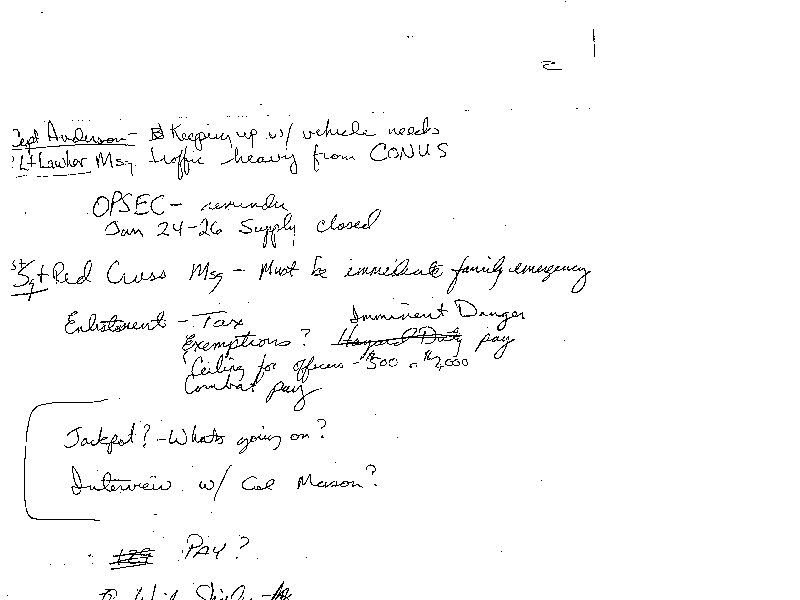 Capt Anderson - Keeping up w/ vehicle needs
Lt Lawhor Msg. traffic heavy from CONUS
OPSEC - reminder
Jan 24-26 Supply closed
Red Cross Msg - Must be immediate family emergency
Enlistment - Tax Imminent Danger
Exemptions? Hazard Duty pay
Ceiling for officers - $500 $2,000
Combat pay
Jackpot? - Whats going on?
Interview w/ Col Mason?
129 PAY?